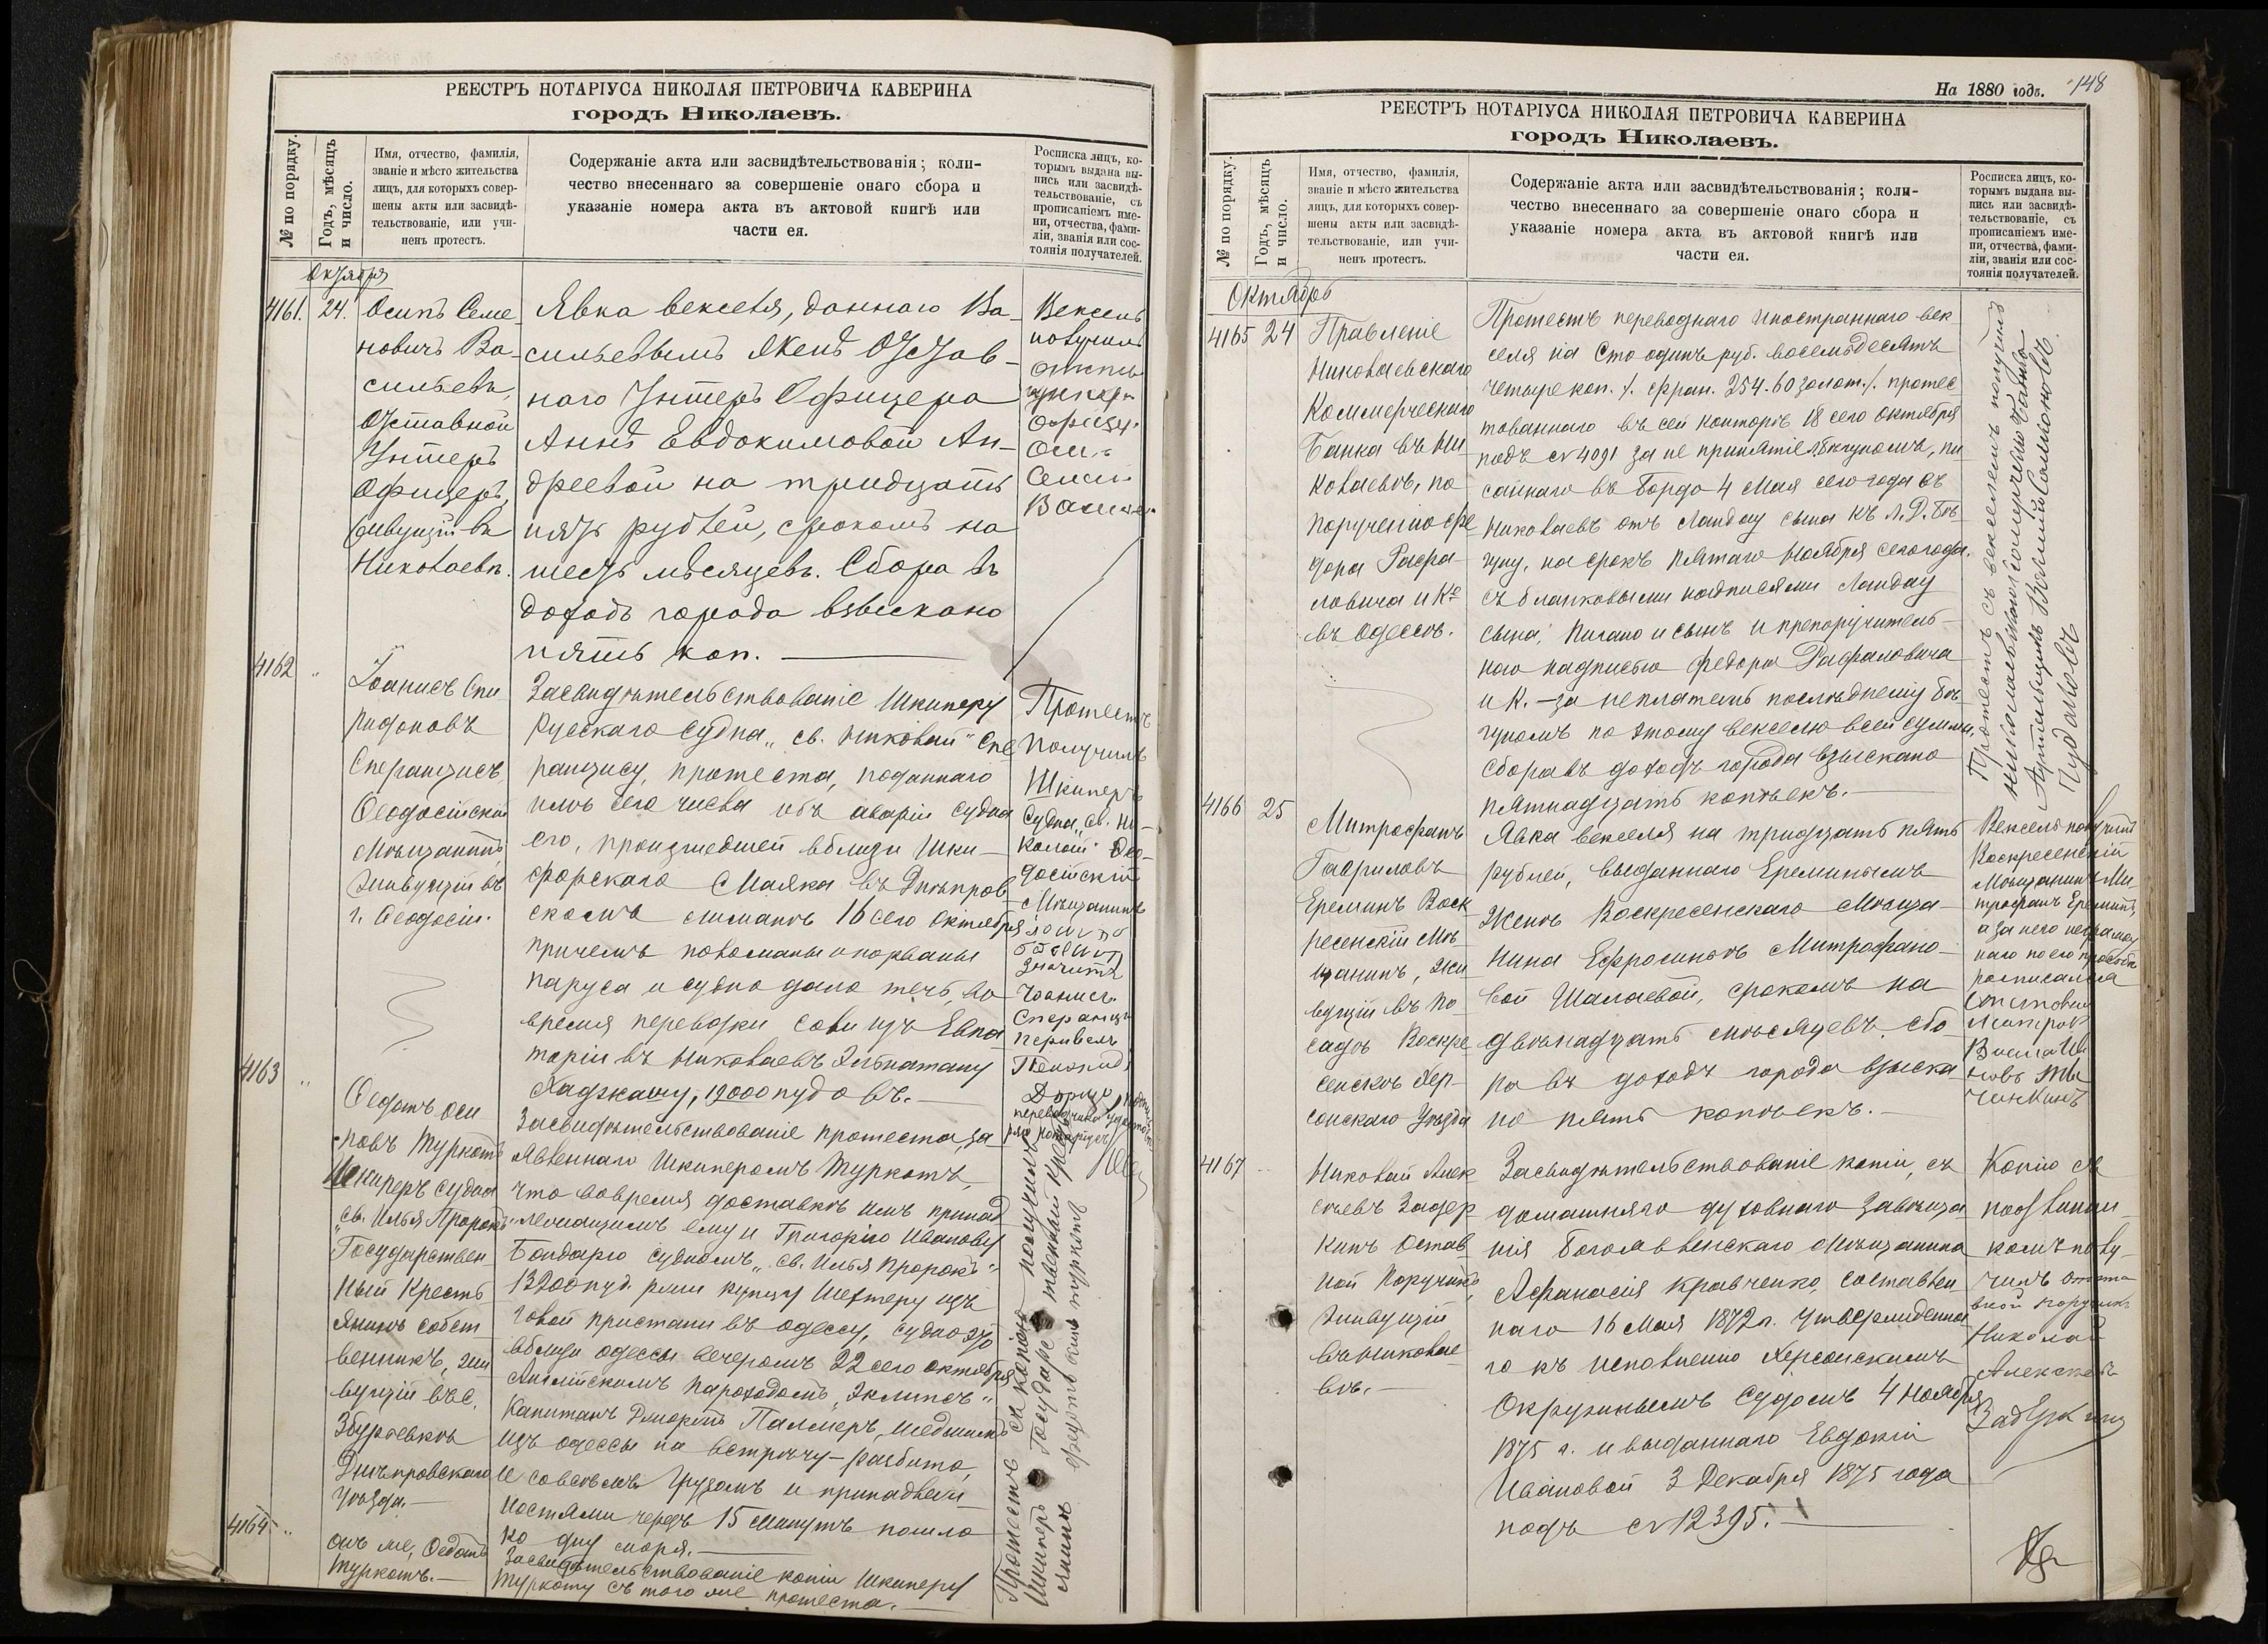 РЕЕСТРЪ НОТАРІУСА НИКОЛАЯ ПЕТРОВИЧА КАВЕРИНА
городъ Николаевъ.
№ по порядку.
Годъ, мѣсяцъ
и число.
Имя, отчество, фамилія,
званіе и мѣсто жительства
лицъ, для которыхъ совер-
шены акты или засвидѣ-
тельствованіе, или учи-
ненъ протестъ.
Содержаніе акта или засвидѣтельствованія; коли-
чество внесеннаго за совершеніе онаго сбора и
указаніе номера акта въ актовой книгѣ или
части ея.
Росписка лицъ, ко-
торымъ выдана вы-
пись или засвидѣ-
тельствованіе, съ
прописаніемъ име-
ни, отчества, фами-
ліи, званія или сос-
тоянія получателей.
Октября
4161.
24.
Осипъ Семе-
новичъ Ва-
сильевъ,
Отставной
Унтеръ
Офицеръ,
живущій въ
Николаевѣ.
Явка векселя, даннаго Ва-
сильевымъ женѣ Отстав-
наго Унтеръ Офицера
Аннѣ Евдокимовой Ан-
дреевой на тридцать
пять рублей, срокомъ на
шесть мѣсяцевъ. Сбора въ
доходъ города взыскано
пять коп.
Вексель
получилъ
унтеръ
Офицеръ
4162
"
Іоанисъ Спи
ридоновъ
Сперанцисъ,
Ѳеодосійскій
Мѣщанинъ,
живущій въ
г. Ѳеодосіи.
Засвидѣтельствованіе Шкиперу
Русскаго судна „св. Николай" Спе
ранцису, протеста, поданнаго
имъ сего числа объ аваріи судна
его, происшедшей вблизи Ники-
форскаго Маяка въ Днѣпров
скомъ лиманѣ 16 сего Октября
причемъ поломаны и порваны
паруса и судно дало течь, во
время перевозки соли изъ Евпа
торіи въ Николаевъ Эльнатану
Хаджкашу, 12000 пудовъ.
Протестъ
Получилъ
Шкиперъ
Судна „св. Ни-
колай" Ѳео-
досійскій
Мѣщанинъ
значитъ
Іоанисъ
Сперанцисъ
Перивелъ
4163
"
Ѳедотъ Оси
повъ Туркотъ
Шкиперъ судна
„св. Илья Пророкъ"
Государствен
ный Кресть
янинъ собст
венникъ, жи
вущій въ с.
Збурьевкѣ
Днѣпровскаго
Уѣзда.
Засвидѣтельствованіе протеста, за
явленнаго Шкиперомъ Туркотъ,
что во время доставкѣ имъ принад
лежащимъ ему и Григорію Иванову
Бондарю судномъ „св. Илья Пророкъ"
пуд. ржи купцу Шехтеру изъ
Говой пристани въ Одессу, судно это
вблизи Одессы вечеромъ 22 сего Октября
Англійскимъ Пароходомъ „Эклипсъ"
Капитанъ Джоржъ Палмеръ, шедшимъ
изъ Одессы на встрѣчу - разбито,
и со всѣмъ грузомъ и принадлеж
ностями чрезъ 15 минутъ пошло
ко дну моря.
Протестъ съ копіею получилъ
Шкиперъ Государственный Кресть
янинъ Ѳедотъ Туркотъ
4164
"
онъ же, Ѳедотъ
Туркотъ.
Засвидѣтельствованіе копіи Шкиперу
Туркоту съ того же протеста.
На 1880 годъ.
148
РЕЕСТРЪ НОТАРІУСА НИКОЛАЯ ПЕТРОВИЧА КАВЕРИНА
городъ Николаевъ.
№ по порядку.
Годъ, мѣсяцъ
и число.
Имя, отчество, фамилія,
званіе и мѣсто жительства
лицъ, для которыхъ совер-
шены акты или засвидѣ-
тельствованіе, или учи-
ненъ протестъ.
Содержаніе акта или засвидѣтельствованія; коли-
чество внесеннаго за совершеніе онаго сбора и
указаніе номера акта въ актовой книгѣ или
части ея.
Росписка лицъ, ко-
торымъ выдана вы-
пись или засвидѣ-
тельствованіе, съ
прописаніемъ име-
ни, отчества, фами-
ліи, званія или сос-
тоянія получателей.
Октябрь
4165
24
Правленіе
Николаевскаго
Коммерческаго
Банка въ Ни
колаевѣ, по
порученію Фе
дора Рафа-
ловича и Ко
въ Одессѣ.
Протестъ переводнаго иностраннаго век
селя на Сто одинъ руб. восемьдесятъ
четыре коп. /. фран. 254.60 золот./. протес
тованнаго въ сей конторѣ 18 сего Октября
подъ № 4091 за не принятіе, пи
саннаго въ Бордо 4 Мая сего года съ
Николаевъ отъ Ландау сына къ Л. Д.
на срокъ пятаго Ноября сего года,
съ бланковыми надписями Ландау
сына, и сынъ и препоручитель-
ного надписью Федора Рафаловича
и К. - за неплатежъ послѣднему
по этому векселю всей суммы.
Сбора въ доходъ города взыскано
пятнадцать копѣекъ.
Протестъ съ векселемъ получилъ
Николаевскаго Коммерческаго Банка
Артельщикъ
4166
25
Митрофанъ
Гавриловъ
Ереминъ Воск
ресенскій Мѣ
щанинъ, жи
вущій въ По
садѣ Воскре
сенскѣ Хер-
сонскаго Уѣзда
Явка векселя на тридцать пять
рублей, выданнаго Ереминымъ
Женѣ Воскресенскаго Мѣща-
нина Ефросиньѣ Митрофано-
вой Шалаевой, срокомъ на
двѣнадцать мѣсяцевъ. Сбо
ра въ доходъ города взыска
но пять копѣекъ.
Вексель получилъ
Воскресенскій
Мѣщанинъ Ми
трофанъ Ереминъ,
а за него неграмот
наго по его просьбѣ
росписался
4167
Николай Алек
сѣевъ Задер
кинъ Остав
ной Поручикъ,
Живущій
въ Николае-
вѣ.
Засвидѣтельствованіе копіи, съ
домашняго духовнаго завѣща
нія Богоявленскаго Мѣщанина
Афанасія Кравченко, составлен
наго 16 Мая 1872 г. утвержденна
го къ исполненію Херсонскимъ
Окружнымъ Судомъ 4 Ноября
1875 г. и выданнаго Евдокіи
Ивановой 3 Декабря 1875 года
подъ № 12395.
Копію съ
подлинни-
комъ полу-
чилъ отста
вной поручикъ
Николай
Алексѣевъ
Задеркинъ